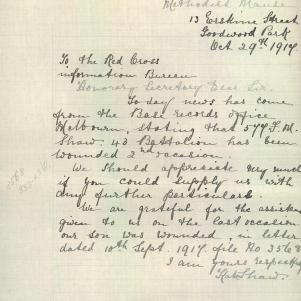 Methodist Manse
13 Erskine Street
Goodwood Park
Oct 29th 1917.
To the Red Cross
information Bureau
Honorary Secretary Dear Sir.
To day news has come
from the Base records office
Melbourn, stating that 577 F. M.
Shaw. 43 Battalion has been
wounded 2nd ocasion.
We should appresiate very much
if you could supply us with
any further particulars.
We are grateful for the assistan
given to us on the last occasion
our son was wounded, in letter
dated 10th Sept. 1917. file No 3568
I am yours respectfu
Shaw.